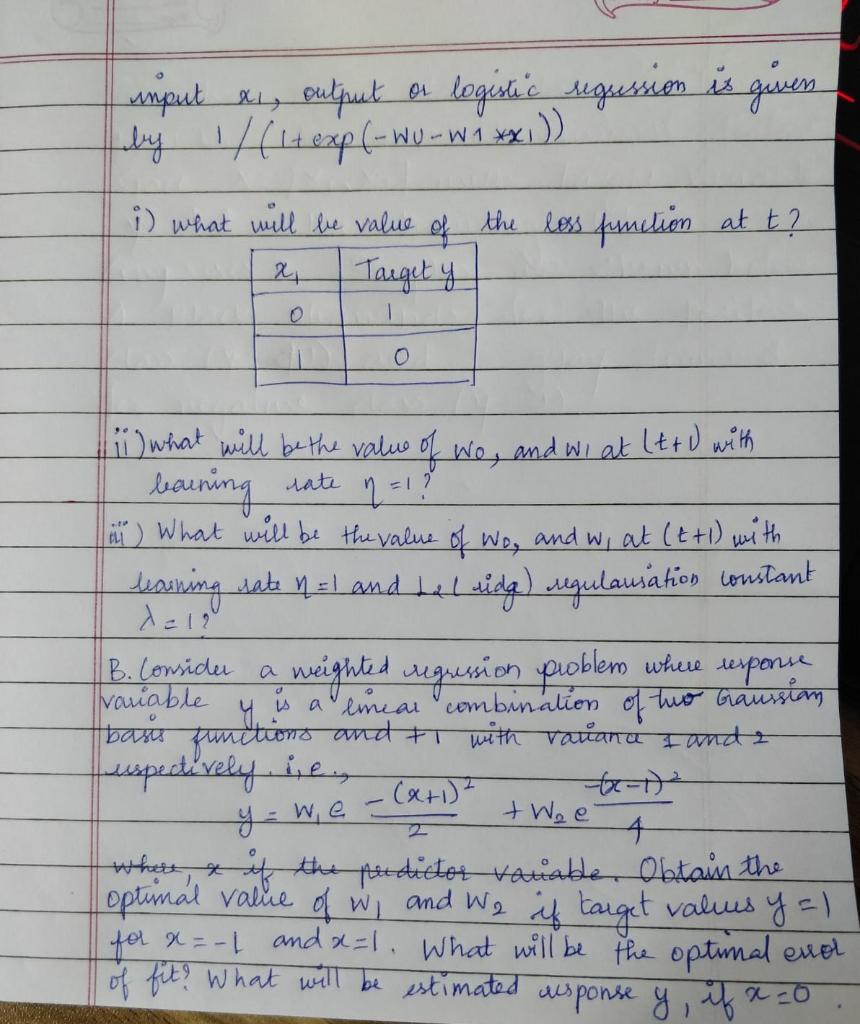 input x1, output or logistic regression is given
by 1/(1+exp(-W0-W1*x1))
i) what will be value of the loss function at t?
x1 Target y
0 1
1 0
ii) what will be the value of W0, and W1 at (t+1) with
learning rate η=1?
iii) What will be the value of W0, and W1 at (t+1) with
learning rate η=1 and L2( ridge) regularisation constant
λ=1?
B. Consider a weighted regression problem where response
variable y is a linear combination of two Gaussian
basis functions and +1 with variance 1 and 2
respectively. i,e.,
y = W1e -(x+1)²/2 + W2e -(x-1)²/4
where, x if the predictor variable. Obtain the
optimal value of W1 and W2 if target values y=1
for x=-1 and x=1. What will be the optimal error
of fit? What will be estimated response y, if x=0.